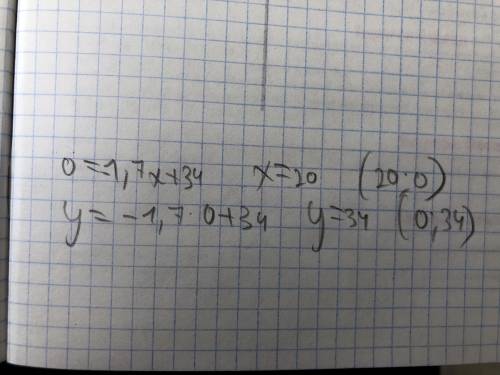 0=-1,7x+34 x=20 (20;0)
y=-1,7·0+34 y=34 (0;34)